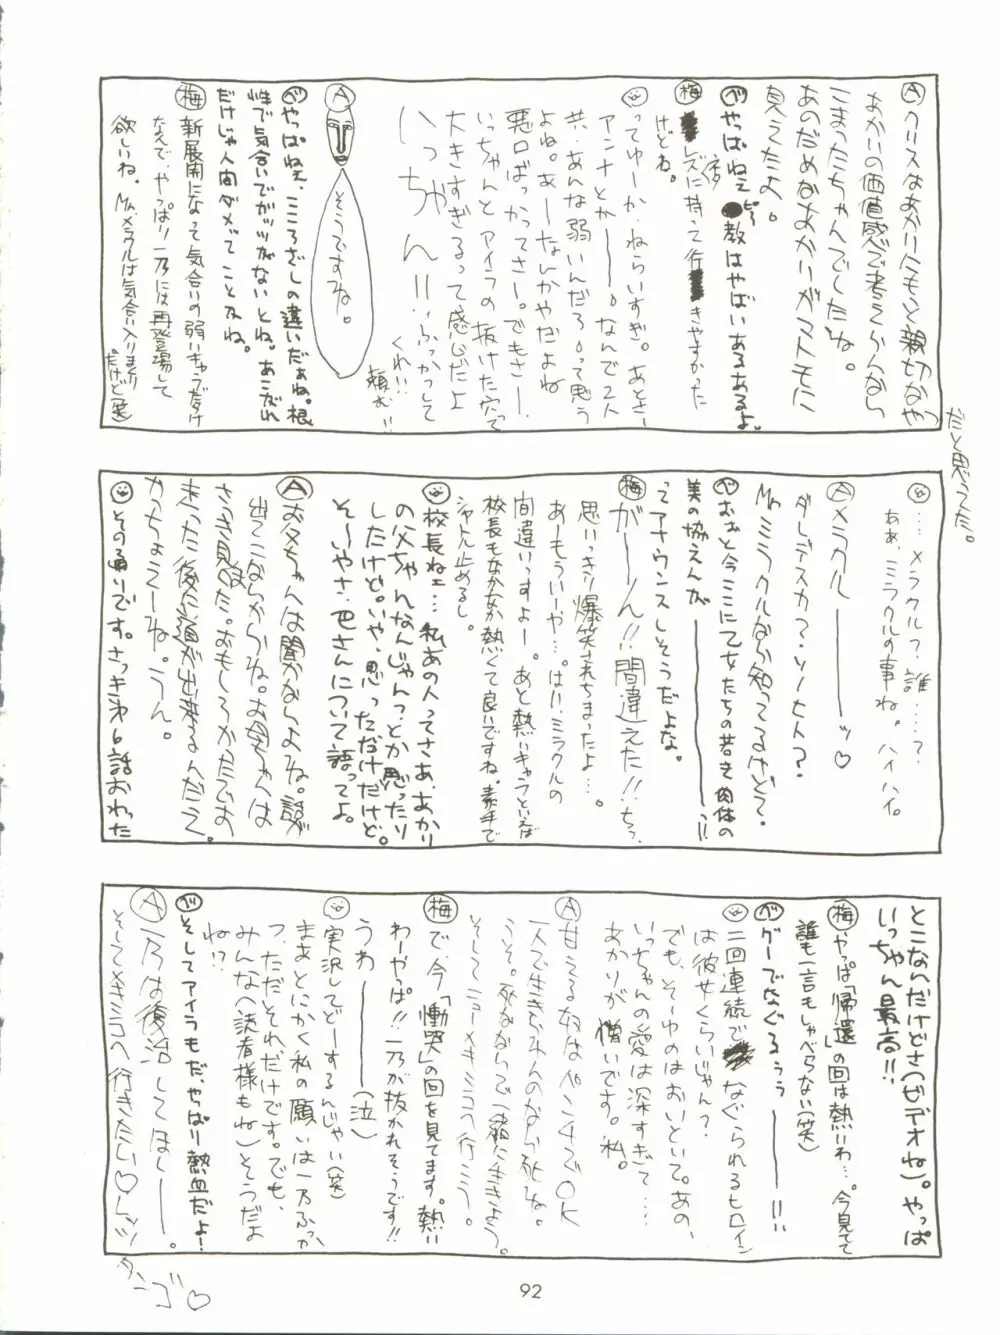 Ⓐクリスはあかりにもンと親切なやつ
だと思ってた。
あかりの価値感で考えらんなら
こまったちゃんでしたね。
あのだめなあかりがマトモに
見えたよ。
べやっぱねぇ ●教はやばいあるあるよ。
ピー
梅 ネタ
ズに持って行きやすかった
けどね。
ってゆーか、ねらいすぎ。あとさー
アンナとかー。なんで2人
共、あんな弱いんだろって思う
よね。あーなんかやだよね
悪口ばっかってさー。でもさー、
いっちゃんとアイラの抜けた穴って
大きすぎるって感じだよ
いっちゃん!!ふっかつして
くれ!!
頼む!!
Ⓐ
そうですね。
べやっぱねぇ、こころざしの違いだぁね。根
性で気合いでガッツがないとね。あこがれ
だけじゃ人間ダメってことよね。
梅 新展開になって気合いの弱いキャラだらけ
なんで、やっぱり一乃には再登場して
欲しいね。Mr.メラクルは気合い入りまくり
だけど(笑)
……メラクル?誰……?
ああ、ミラクルの事ね。ハイハイ。
Ⓐメラクルーーーッ♡
ダレデスカ?ソノヒト?
Mr.ミラクルなら知ってるけどさ。
べおおっと今ここに乙女たちの若き肉体の
美の協えんがーーー!!
ってアナウンスしそうだよな。
梅 がーーん!!間違えた!!ちっ、
思いっきり爆笑されちまったよ…。
あーもういーや…。はい、ミラクルの
間違いっすよー。あと熱いキャラといえば
校長もなかなか熱くて良いですね。素手で
シャトル止めるし。
校長ねェ…私あの人ってさあ、あかり
の父ちゃんなんじゃん?とか思ったり
したけど。いや、思っただけだけど。
そーいやさ、巴さんについて語ってよ。
Ⓐお父ちゃんは聞かないよね。話が
出てこないからね。お母ちゃんは
さっき見てた。おもしろかったでお
走った後に道が出来るんだぜ。
かっちょえーね。うん。
その通りです。さっき第6話おわった
とこなんだけどさ(ビデオね)。やっぱ
いっちゃん最高!!
梅 やっぱ「帰還」の回は熱いわ…。今見てて
誰も一言もしゃべらない(笑)
べグーでなぐるぅぅーーー!!
二回連続でなぐられるヒロイン
は彼女くらいじゃん?
でも、そーゆのはおいといて。あの、
いっちゃんの愛は深すぎて……
あかりが憎いです。私。
Ⓐ甘えるな奴はパンチでOK
一人で生きらんのなら死ね。
うそ。死なないで一緒に生きよう。
そしてニューメキシコへ行こう。
梅 で、今「慟哭」の回を見てます。熱い
わーやっぱ!!一乃が抜かれそうです!!
うわーーー(泣)
実況してどーするんじゃい(笑)
まあとにかく私の願いは一乃ふっか
つ、ただそれだけです。でも、
みんな(読者様もね)そうだよ
ね!?
べそしてアイラもだ、やっぱり熱血だよ!
Ⓐ一乃は復活してほしーーー。
そしてメキシコへ行きたい♡レッツ
ゴー♡
92